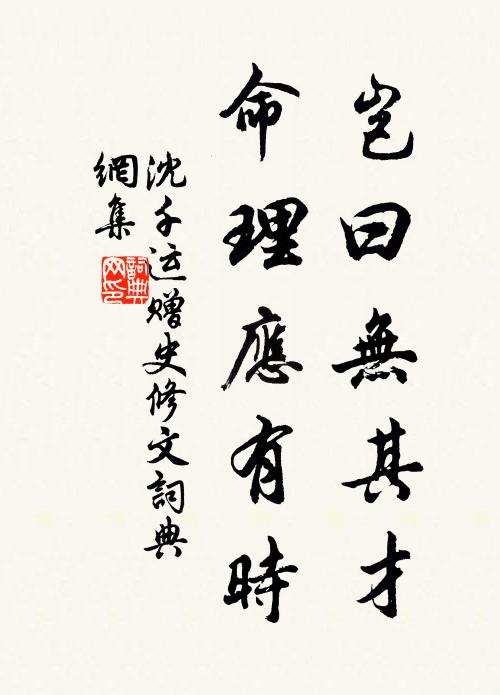 豈曰無其才
命理應有時
沈千运赠史修文詞典
網集
詞典
网印